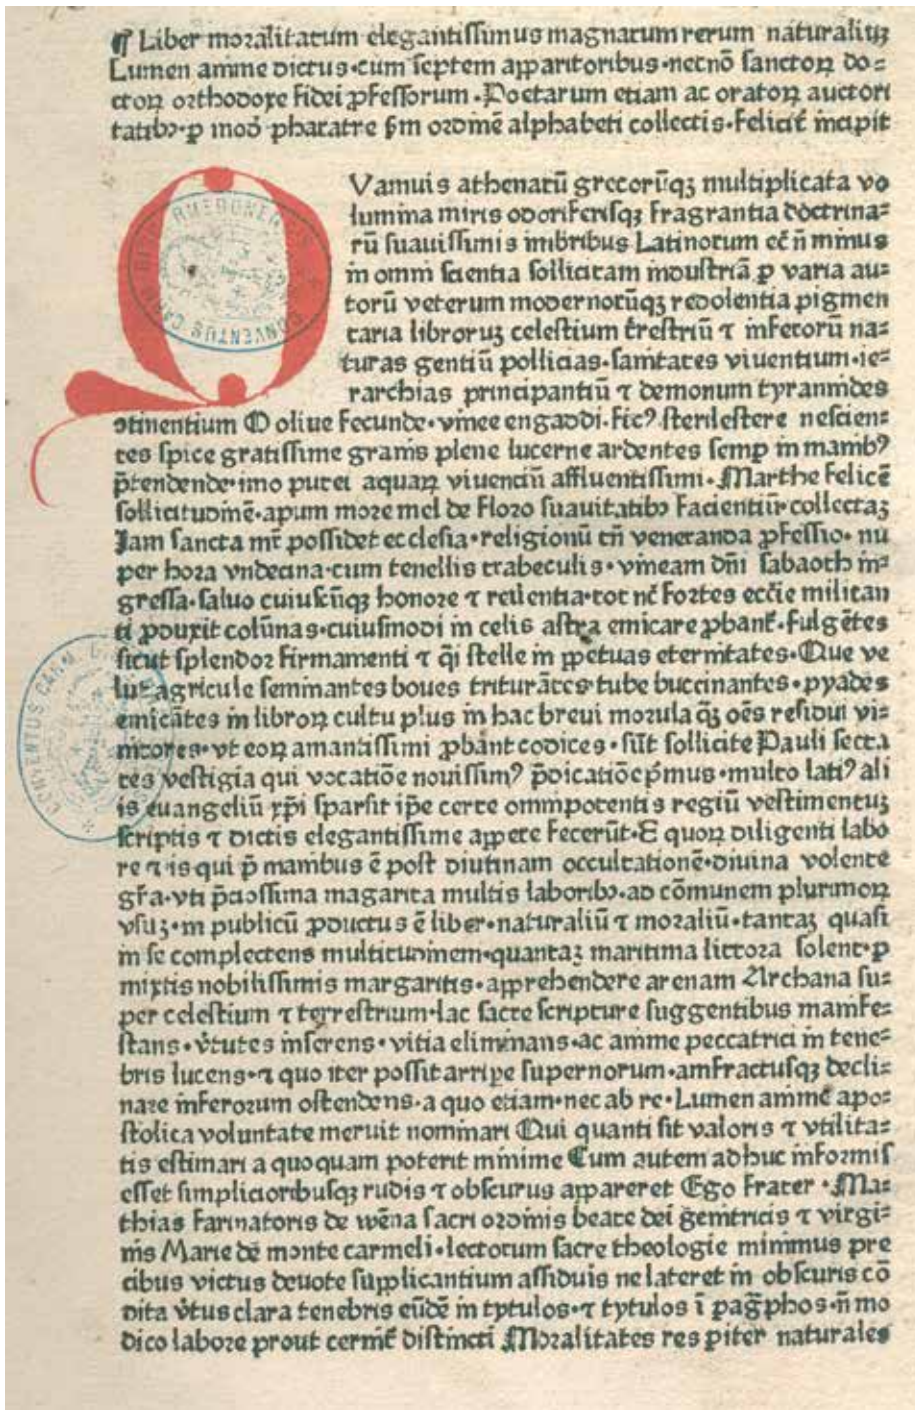 ¶ Liber moralitatum elegantissimus magnarum rerum naturaliuꝫ
Lumen anime dictus·cum septem apparitoribus·necnō sanctoꝝ do⸗
ctoꝝ orthodoxe fidei ꝓfessorum·Poetarum etiam ac oratoꝝ auctori
tatibꝰ·ꝑ modū pharatre ẜm ordinē alphabeti collectis·feliciť incipit
QVamuis athenarū grecorūqꝫ multiplicata vo
lumina miris odoriferisqꝫ fragrantia doctrina⸗
rū suauissimis imbribus Latinorum ec̄ n̄ minus
in omni scientia sollicitam industriā ꝑ varia au⸗
torū veterum modernorūqꝫ redolentia pigmen
taria libroruꝫ celestium t̄restriū ⁊ inferorū na⸗
turas gentiū pollicias·sanitates viuentium·ie⸗
rarchias principantiū ⁊ demonum tyrannides
ↄtinentium O oliue fecunde·vinee engaddi·ficꝰ sterilestere nescien⸗
tes spice gratissime granis plene lucerne ardentes semꝑ in manibꝰ
p̄tendende·imo putei aquaꝝ viuenciū affluentissimi·Marthe felicē
sollicitudinē·apum more mel de floro suauitatibꝰ facientiū collectaꝫ
Jam sancta mr̄ possidet ecclesia·religionū tn̄ veneranda ꝓfessio·nu
per hora vndecina·cum tenellis trabeculis·vineam dn̄i sabaoth in⸗
gressa·saluo cuiuscūqꝫ honore ⁊ reuentia·tot nc̄ fortes ecc̄ie militan
ti ꝓduxit colūnas·cuiusmodi in celis astra emicare ꝓbanť·fulgētes
sicut splendor firmamenti ⁊ q̄i stelle in ꝑpetuas eternitates·Que ve
lut agricule seminantes boues triturātes tube buccinantes·pyades
emicātes in libroꝝ cultu plus in hac breui morula qꝫ̄ oēs residui vi⸗
nitores·vt eoꝝ amantissimi ꝓbant codices·sūt sollicite Pauli secta
tes vestigia qui vocatiōe nouissimꝰ p̄dicatiōe pͥmus·multo latiꝰ ali
is euangeliū xp̄i sparsit ip̄e certe omnipotentis regiū vestimentuꝫ
scriptis ⁊ dictis elegantissime appete fecerūt·E quoꝝ diligenti labo
re ⁊ is qui p̄ manibus ē post diutinam occultationē·diuina volente
gr̄a·vti p̄ciosissima magarita multis laboribꝰ·ad cōmunem plurimoꝝ
vsuꝫ·in publicū ꝓductus ē liber·naturaliū ⁊ moraliū·tantaꝫ quasi
in se complectens multitudinem·quantaꝫ maritima littora solent·ꝑ
mixtis nobilissimis margaritis·apprehendere arenam Archana su⸗
per celestium ⁊ terrestrium·lac sacre scripture suggentibus manife⸗
stans·v̄tutes inserens·vitia eliminans·ac anime peccatrici in tene⸗
bris lucens·⁊ quo iter possit arripe supernorum·amfractusqꝫ decli⸗
nare inferorum ostendens·a quo etiam·nec ab re·Lumen anime apo⸗
stolica voluntate meruit nominari Qui quanti sit valoris ⁊ vtilita⸗
tis estimari a quoquam poterit minime Cum autem adhuc informis
esset simplicioribusqꝫ rudis ⁊ obscurus appareret Ego frater·Ma⸗
thias farinatoris de wēna sacri ordinis beate dei genitricis ⁊ virgi⸗
nis Marie de monte carmeli·lectorum sacre theologie minimus pre
cibus victus deuote supplicantium assiduis ne lateret in obscuris cō
dita v̄tus clara tenebris eūdē in tytulos·⁊ tytulos ī paḡphos·n̄ mo
dico labore prout cerniť distincti Moralitates res piter naturales